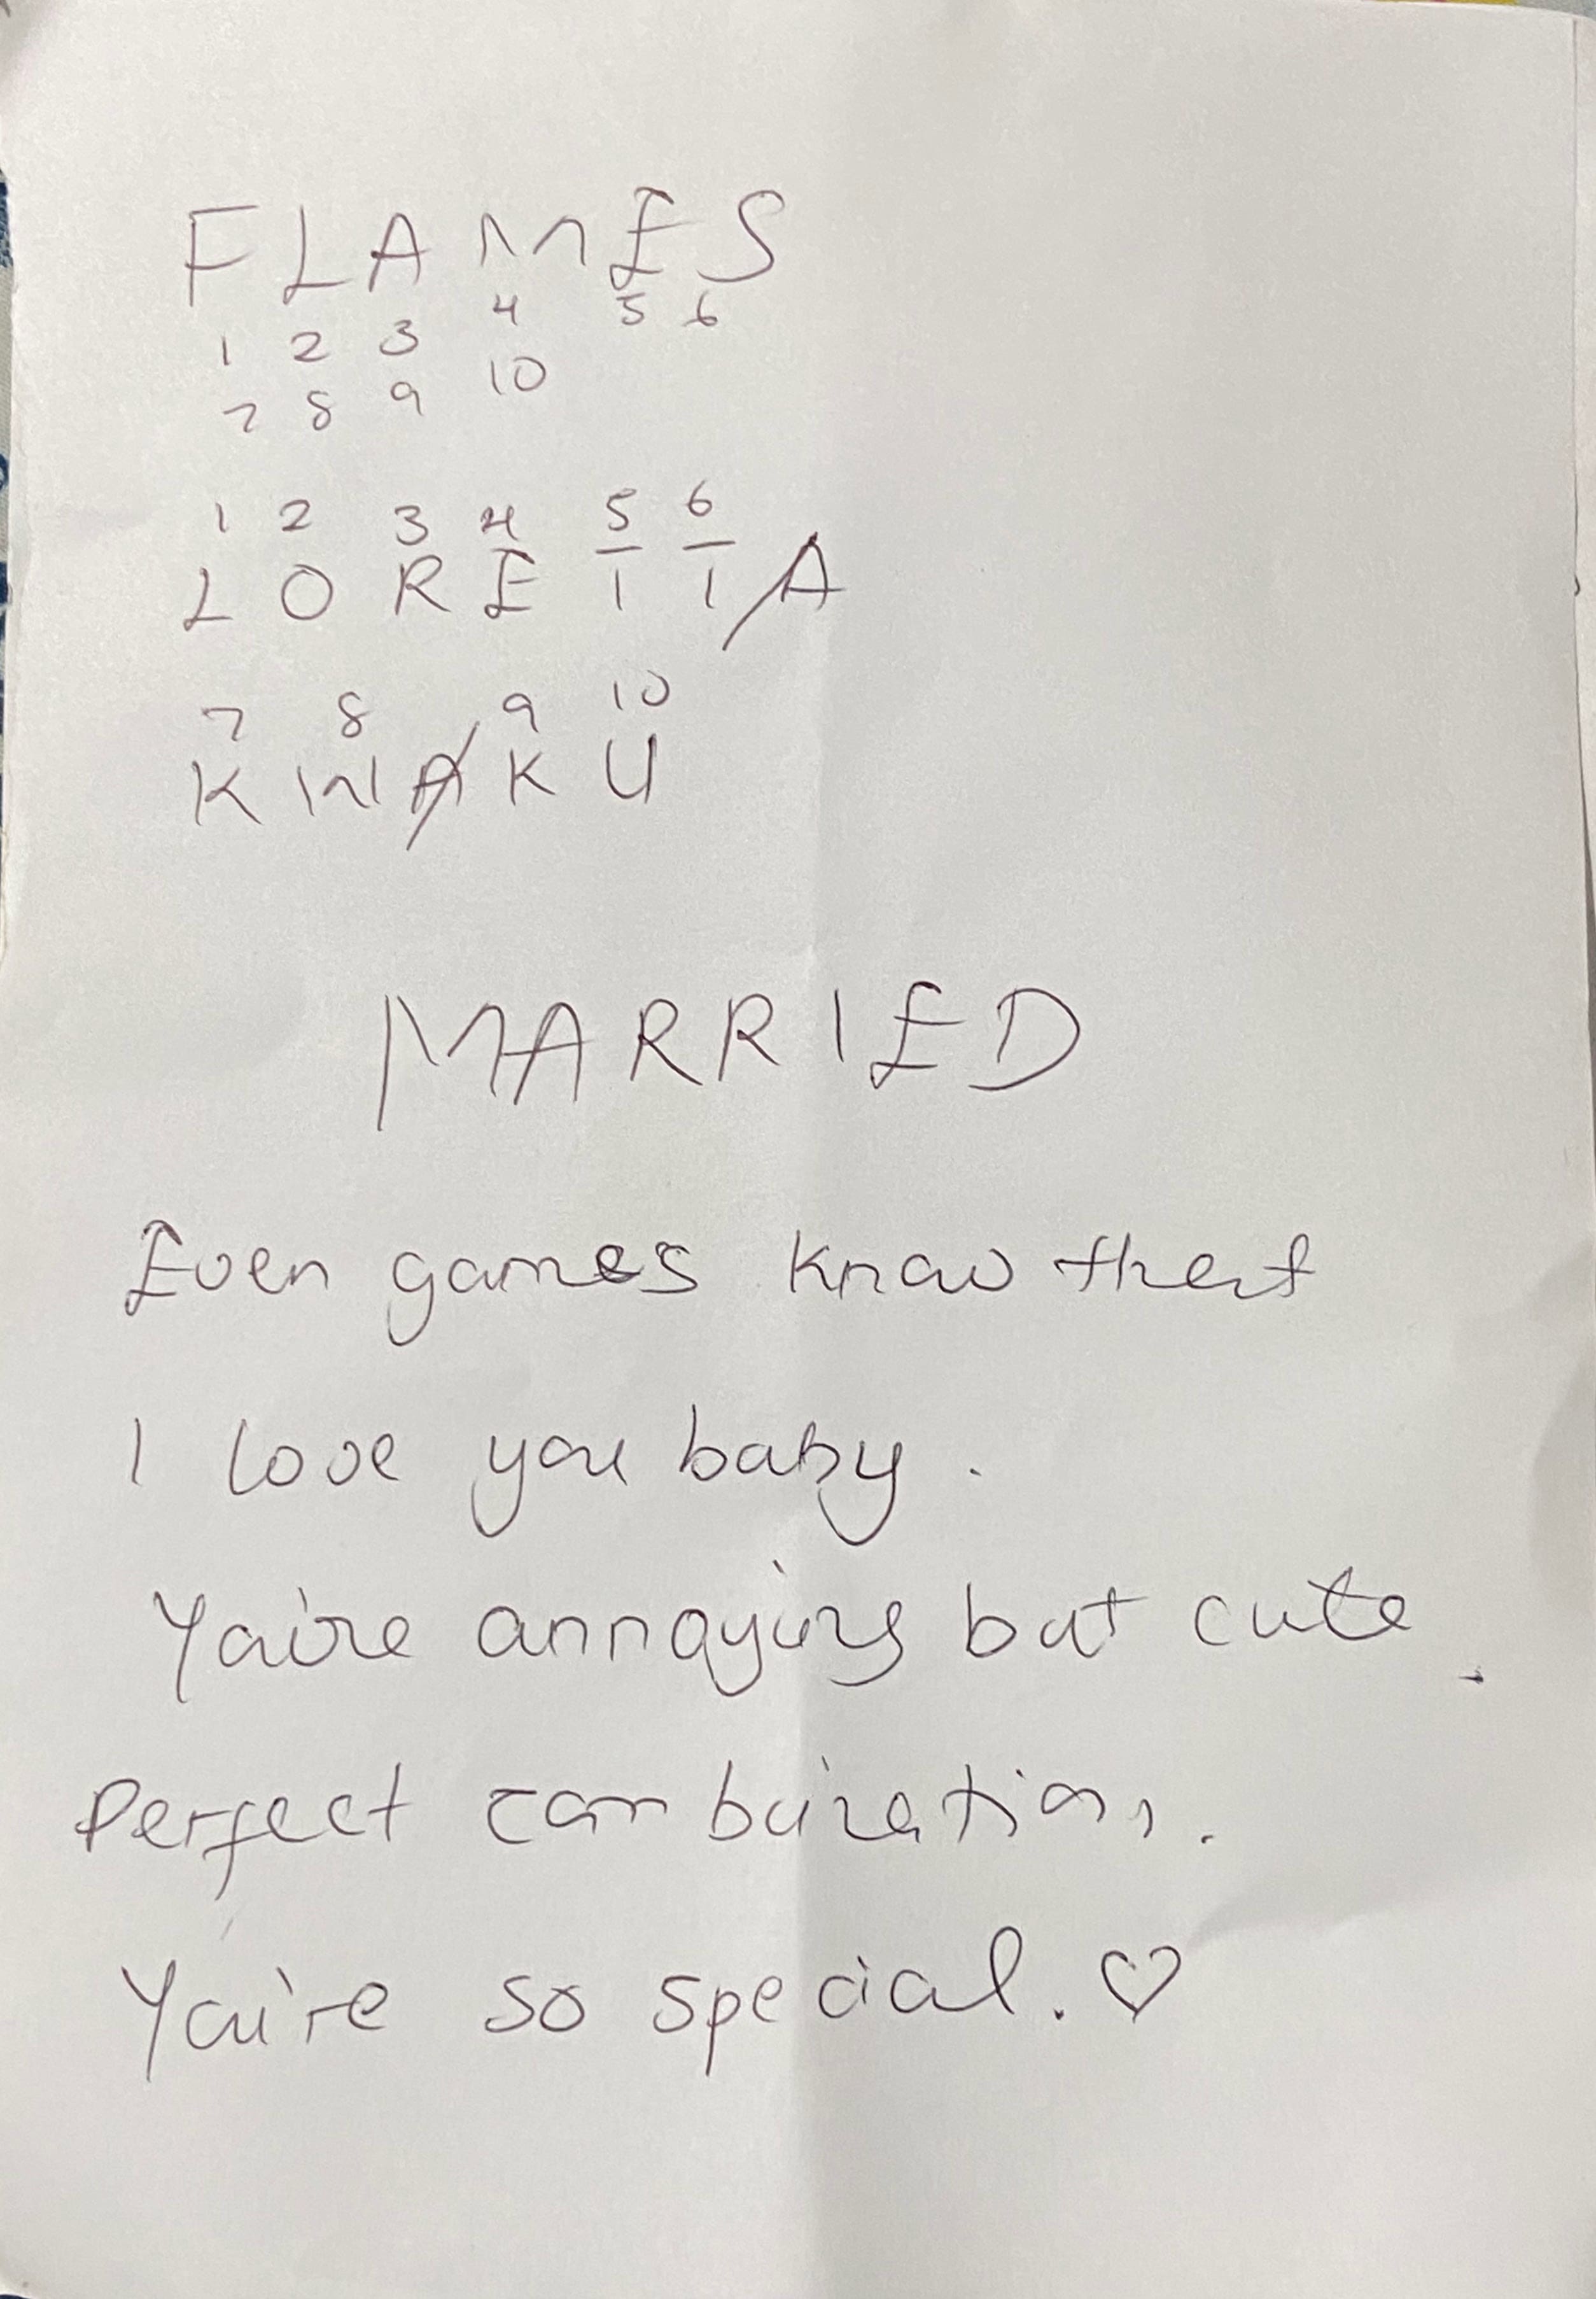 FLAMES
1 2 3 4 5 6
7 8 9 10
1 2 3 4 5 6
LORETTA
7 8 9 10
KWAKU
MARRIED
Even games know that
I love you baby.
You're annoying but cute.
Perfect combination.
You're so special. ♡